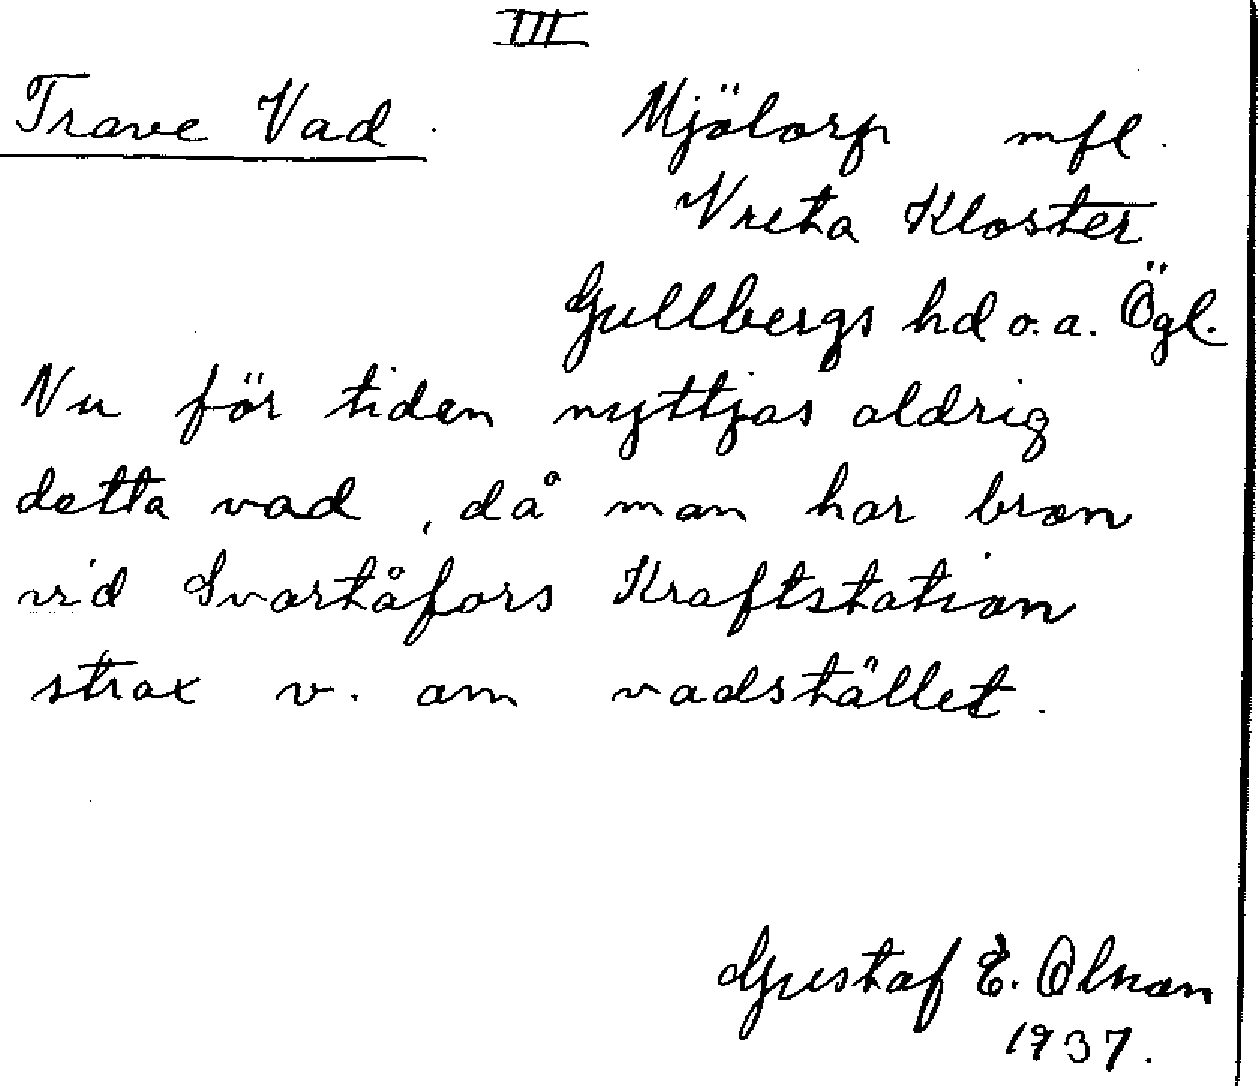 III
Trave Vad. Mjölorp mfl.
Vreta Kloster
Gullbergs hd o.a. Ögl.
Nu för tiden nyttjas aldrig
detta vad, då man har bron
vid Svartåfors Kraftstation
strax v. om vadstället.
Gustaf E.
1937.